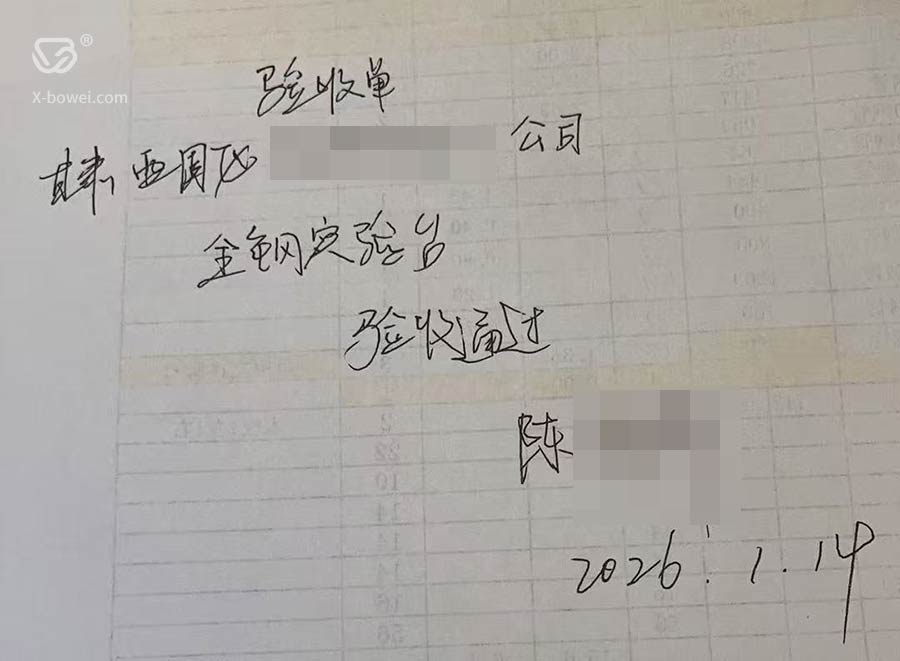 X-bowei.com
验收单
甘肃 公司
金钢实验台
验收通过
陈
2026.1.14